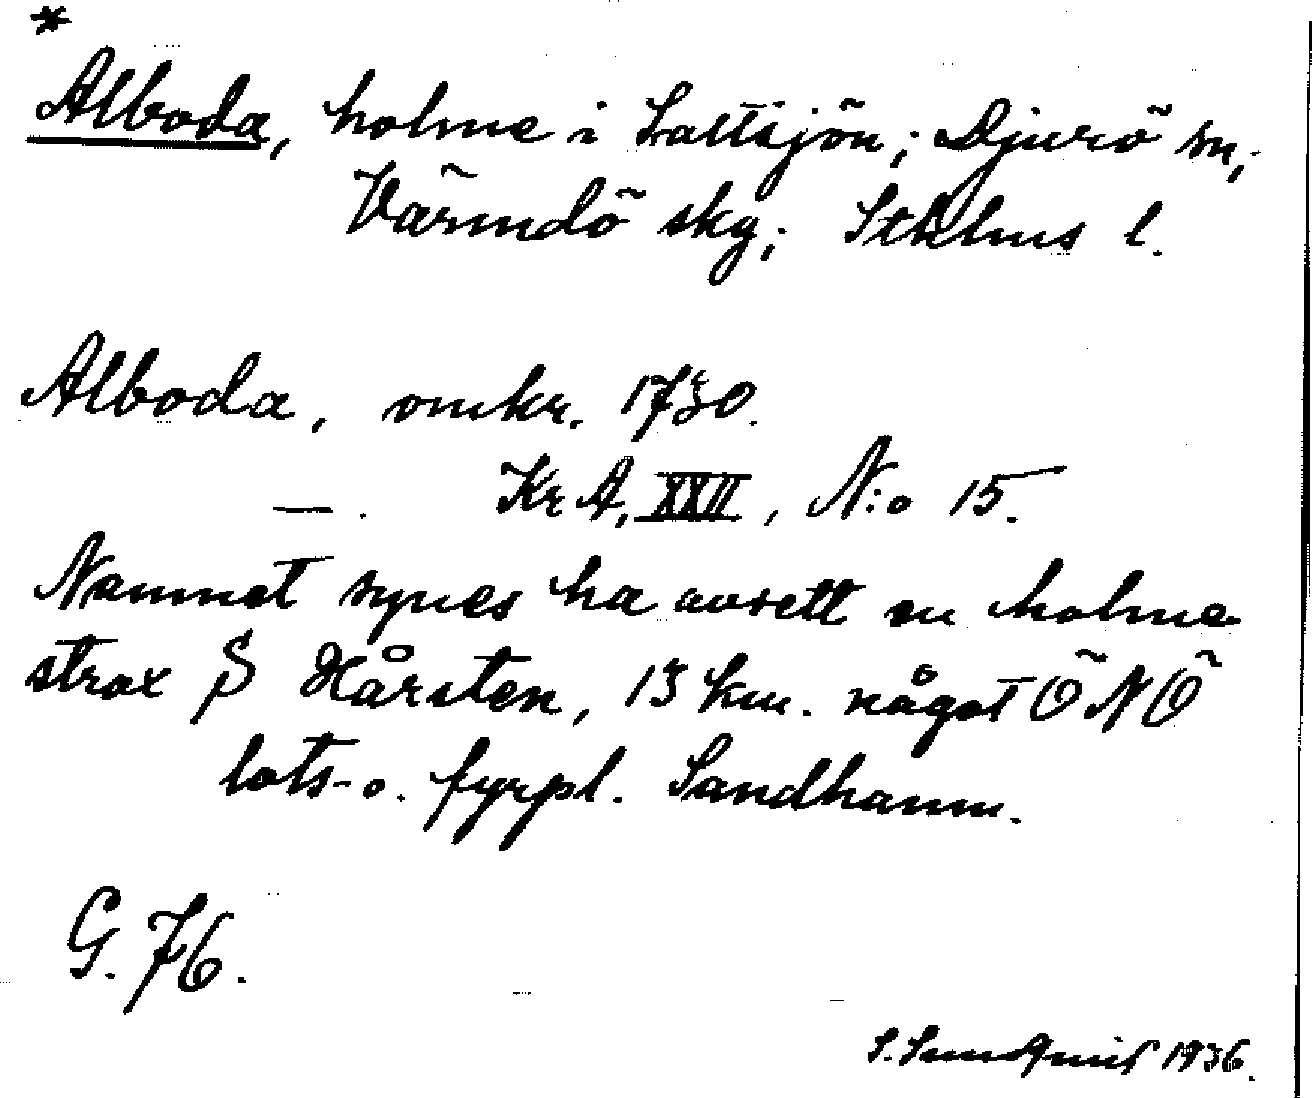 *
Alboda, holme i Saltsjön; Djurö sn,
Värmdö skg; Sthlms l.
Alboda, omkr. 1730.
— . Kr A, XXII, N:o 15.
Namnet synes ha avsett en holme
strax S Hårsten, 13 km. något ÖNÖ
lots- o. fyrpl. Sandhamn.
G. 76.
S. Sundquist 1936.